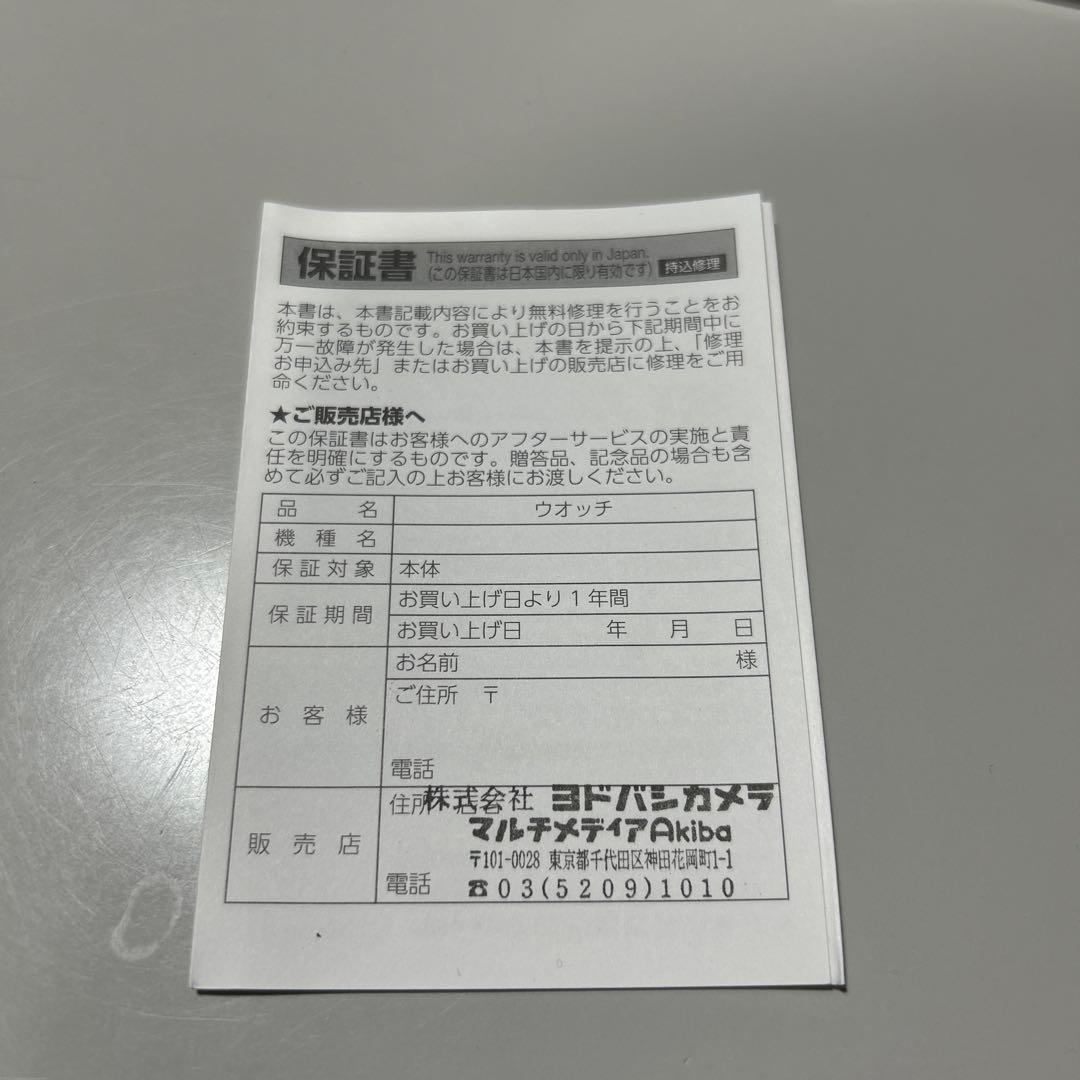 保証書 This warranty is valid only in Japan.
(この保証書は日本国内に限り有効です) 持込修理
本書は、本書記載内容により無料修理を行うことをお
約束するものです。お買い上げの日から下記期間中に
万一故障が発生した場合は、本書を提示の上、「修理
お申込み先」またはお買い上げの販売店に修理をご用
命ください。
★ご販売店様へ
この保証書はお客様へのアフターサービスの実施と責
任を明確にするものです。贈答品、記念品の場合も含
めて必ずご記入の上お客様にお渡しください。
品名 ウオッチ
機種名
保証対象 本体
保証期間 お買い上げ日より1年間
お買い上げ日 年 月 日
お客様 お名前 様
ご住所 〒
電話
販売店 住所・店名
株式会社 ヨドバシカメラ
マルチメディアAkiba
〒101-0028 東京都千代田区神田花岡町1-1
電話 ☎03(5209)1010